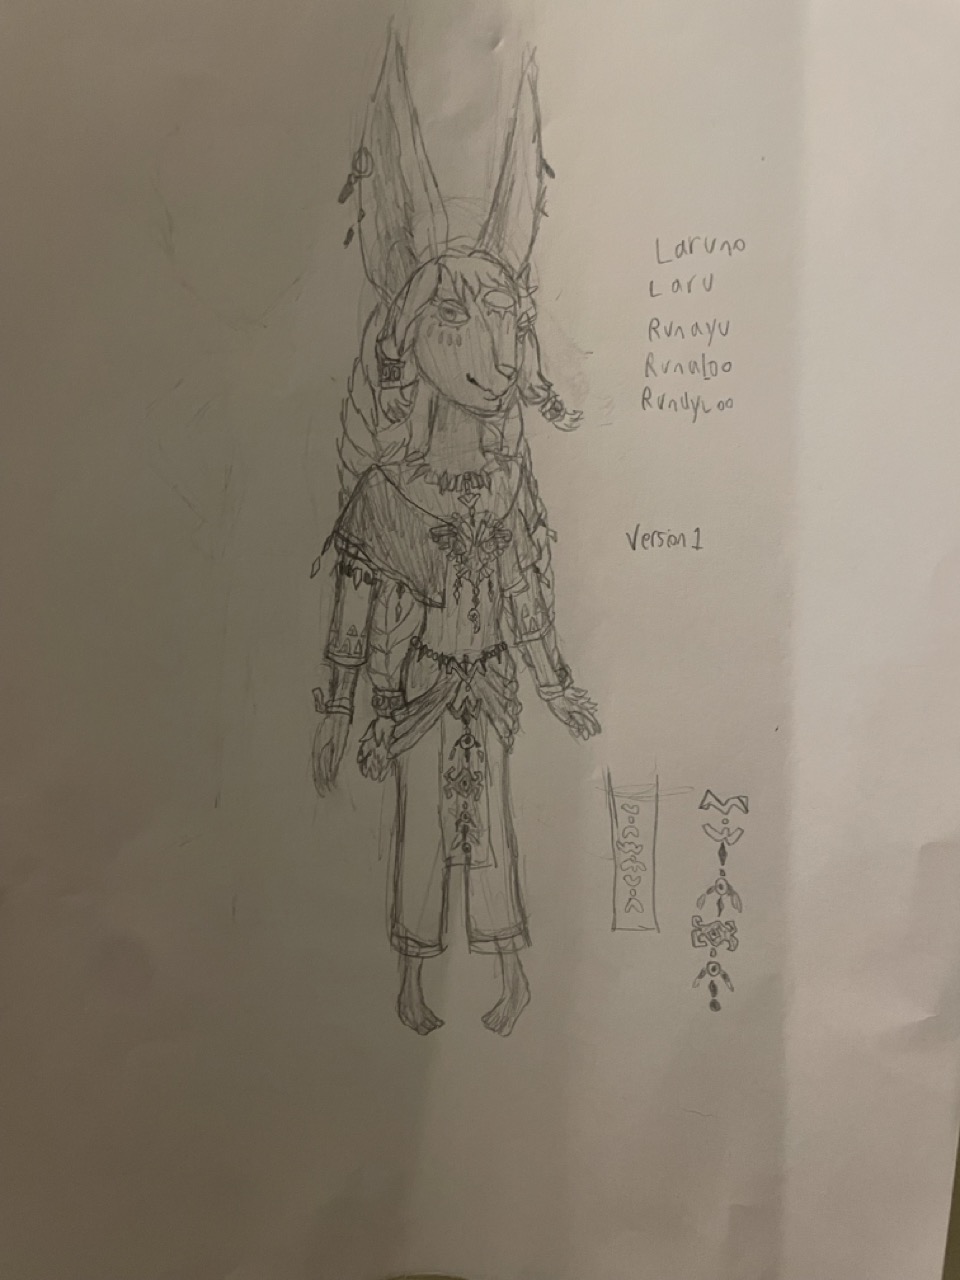 Laruno
Laru
Runayu
Runaloo
Runuyloo
Version 1